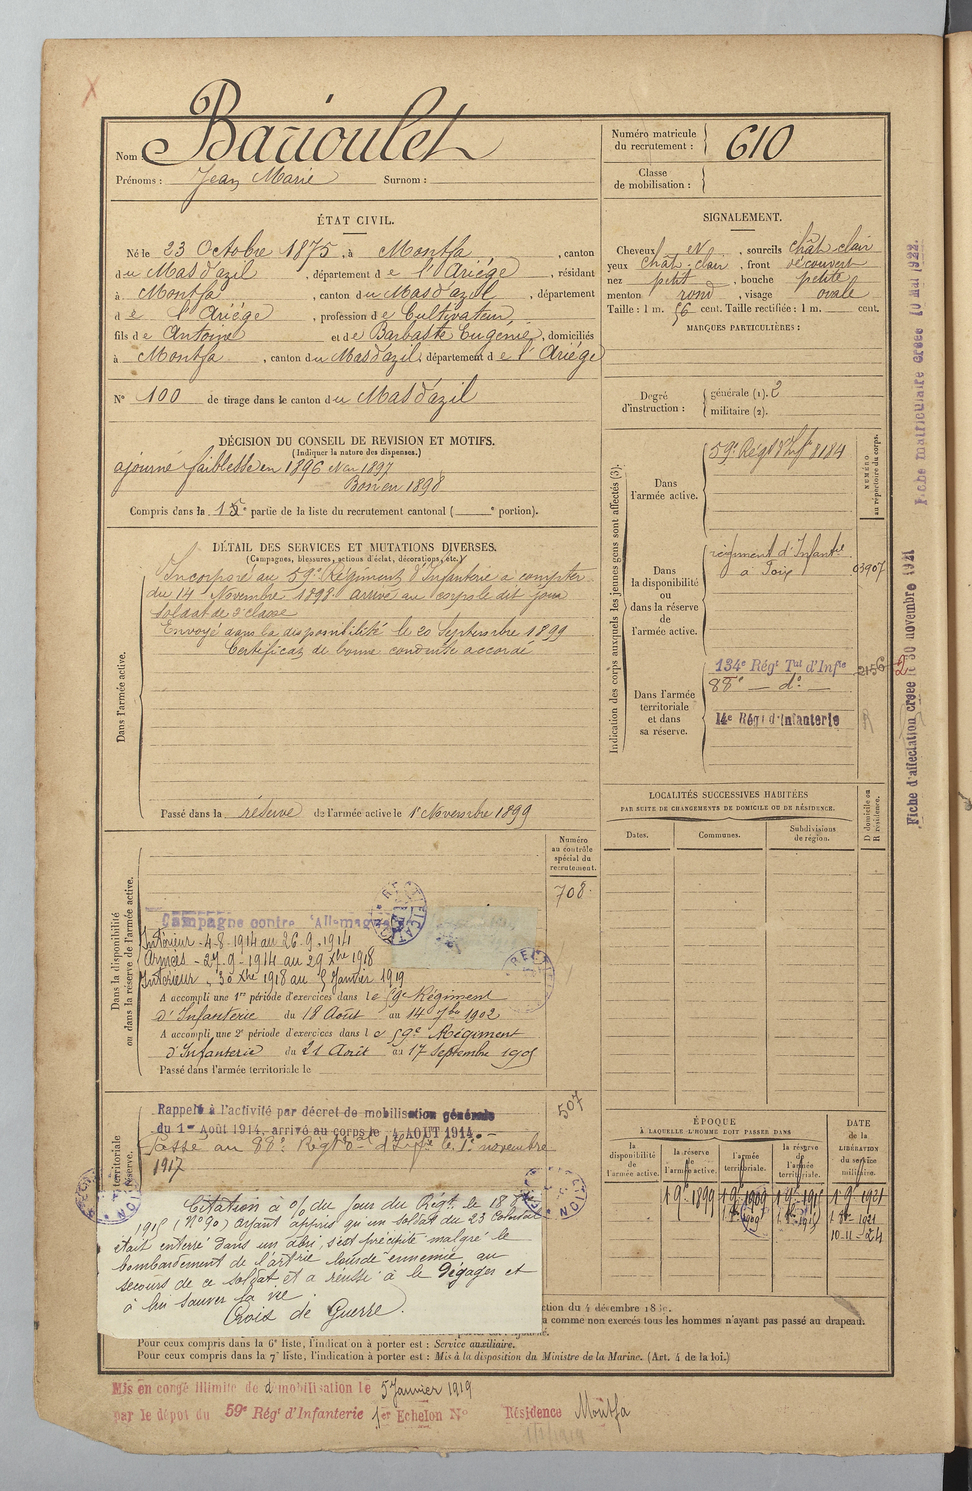 Nom : Barioulet
Prénoms : Jean Marie Surnom :
Numéro matricule du recrutement : 610
Classe de mobilisation :
ÉTAT CIVIL.
Né le 23 Octobre 1875, à Montfa, canton
du Mas d'azil, département de l'Ariége, résidant
à Montfa, canton du Mas d'azil, département
de l'Ariége, profession de Cultivateur
fils de Antoine et de Barbaste Eugénie, domiciliés
à Montfa, canton du Mas d'azil, département de l'Ariége
N° 100 de tirage dans le canton du Mas d'azil
SIGNALEMENT.
Cheveux et N, sourcils chât clair
yeux chât. clair, front découvert
nez petit, bouche petite
menton rond, visage ovale
Taille : 1 m. 56 cent. Taille rectifiée : 1 m. cent.
MARQUES PARTICULIÈRES :
Degré d'instruction :
générale (1). 2
militaire (2).
DÉCISION DU CONSEIL DE REVISION ET MOTIFS.
(Indiquer la nature des dispenses.)
ajourné faiblesse en 1896 et en 1897
Bon en 1898
Compris dans la 1e partie de la liste du recrutement cantonal ( e portion).
DÉTAIL DES SERVICES ET MUTATIONS DIVERSES.
(Campagnes, blessures, actions d'éclat, décorations, etc.)
Dans l'armée active.
Incorporé au 59e Régiment d'Infanterie à compter
du 14 Novembre 1898. arrivé au corps le dit jour
soldat de 2e classe
Envoyé dans la disponibilité le 20 Septembre 1899
Certificat de bonne conduite accordé
Passé dans la réserve de l'armée active le 1er Novembre 1899
Indication des corps auxquels les jeunes gens sont affectés (3).
NUMÉRO au répertoire du corps.
Dans l'armée active.
59e Régt d'Infie 8184
Dans la disponibilité ou dans la réserve de l'armée active.
régiment d'Infantie
à Foix 03907
Dans l'armée territoriale et dans sa réserve.
134e Régt Tal d'Infie 2156
88e — do —
14e Régt d'Infanterie
LOCALITÉS SUCCESSIVES HABITÉES
PAR SUITE DE CHANGEMENTS DE DOMICILE OU DE RÉSIDENCE.
Dates. Communes. Subdivisions de région. D domicile ou R résidence.
Dans la disponibilité ou dans la réserve de l'armée active.
Numéro au contrôle spécial du recrutement.
708
Campagne contre l'Allemagne
Intérieur - 4-8-1914 au 26-9-1914
Armées - 27-9-1914 au 29 Xbre 1918
Intérieur - 30 Xbre 1918 au 5 Janvier 1919
A accompli une 1re période d'exercices dans le 59e Régiment
d'Infanterie du 18 Août au 14 7bre 1902
A accompli une 2e période d'exercices dans le 59e Régiment
d'Infanterie du 21 Août au 17 Septembre 1905
Passé dans l'armée territoriale le
507
Rappelé à l'activité par décret de mobilisation générale
du 1er Août 1914, arrivé au corps le 4 AOUT 1914.
Passé au 88e Régt d'Infie le 1er novembre
1917
territoriale
réserve.
Citation à l'o/ du Jour du Régt. le 18
1918 (N° 90) ayant appris qu'un soldat du 23 Colonial
était enterré dans un abri, s'est précipité malgré le
bombardement de l'artrie lourde ennemie au
secours de ce soldat et a réussi à le dégager et
à lui sauver la vie.
Croix de Guerre.
ÉPOQUE
À LAQUELLE L'HOMME DOIT PASSER DANS
la disponibilité de l'armée active.
la réserve de l'armée active.
l'armée territoriale.
la réserve de l'armée territoriale.
DATE de la LIBÉRATION du service militaire.
1 9e 1899
10-11-24
ction du 4 décembre 18
comme non exercés tous les hommes n'ayant pas passé au drapeau.
Pour ceux compris dans la 6e liste, l'indication à porter est : Service auxiliaire.
Pour ceux compris dans la 7e liste, l'indication à porter est : Mis à la disposition du Ministre de la Marine. (Art. 4 de la loi.)
Mis en congé illimité de démobilisation le 5 Janvier 1919
par le dépôt du 59e Régt d'Infanterie 1er Echelon N° Résidence Montfa
Fiche matriculaire créée 10 Mai 1922.
Fiche d'affectation créée le 30 novembre 1921